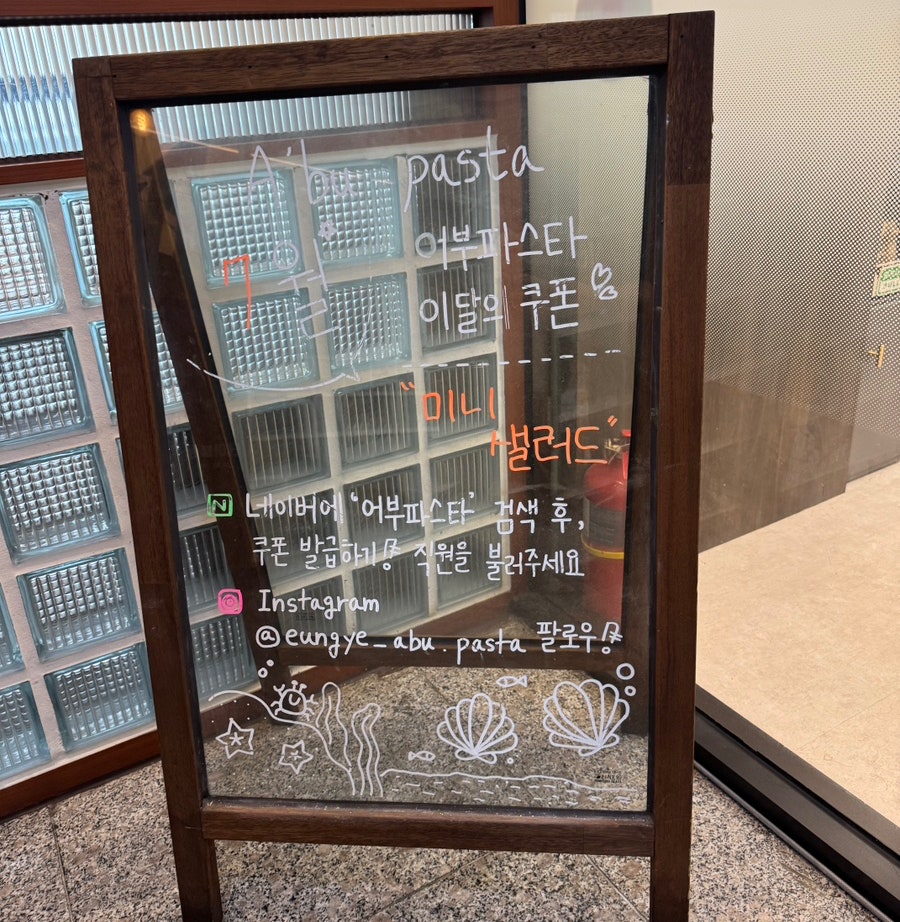 A'bu-pasta
7월
어부파스타
이달의 쿠폰
"미니
샐러드"
N 네이버에 '어부파스타' 검색 후,
쿠폰 발급하기! 직원을 불러주세요
Instagram
@eungye_abu.pasta 팔로우!